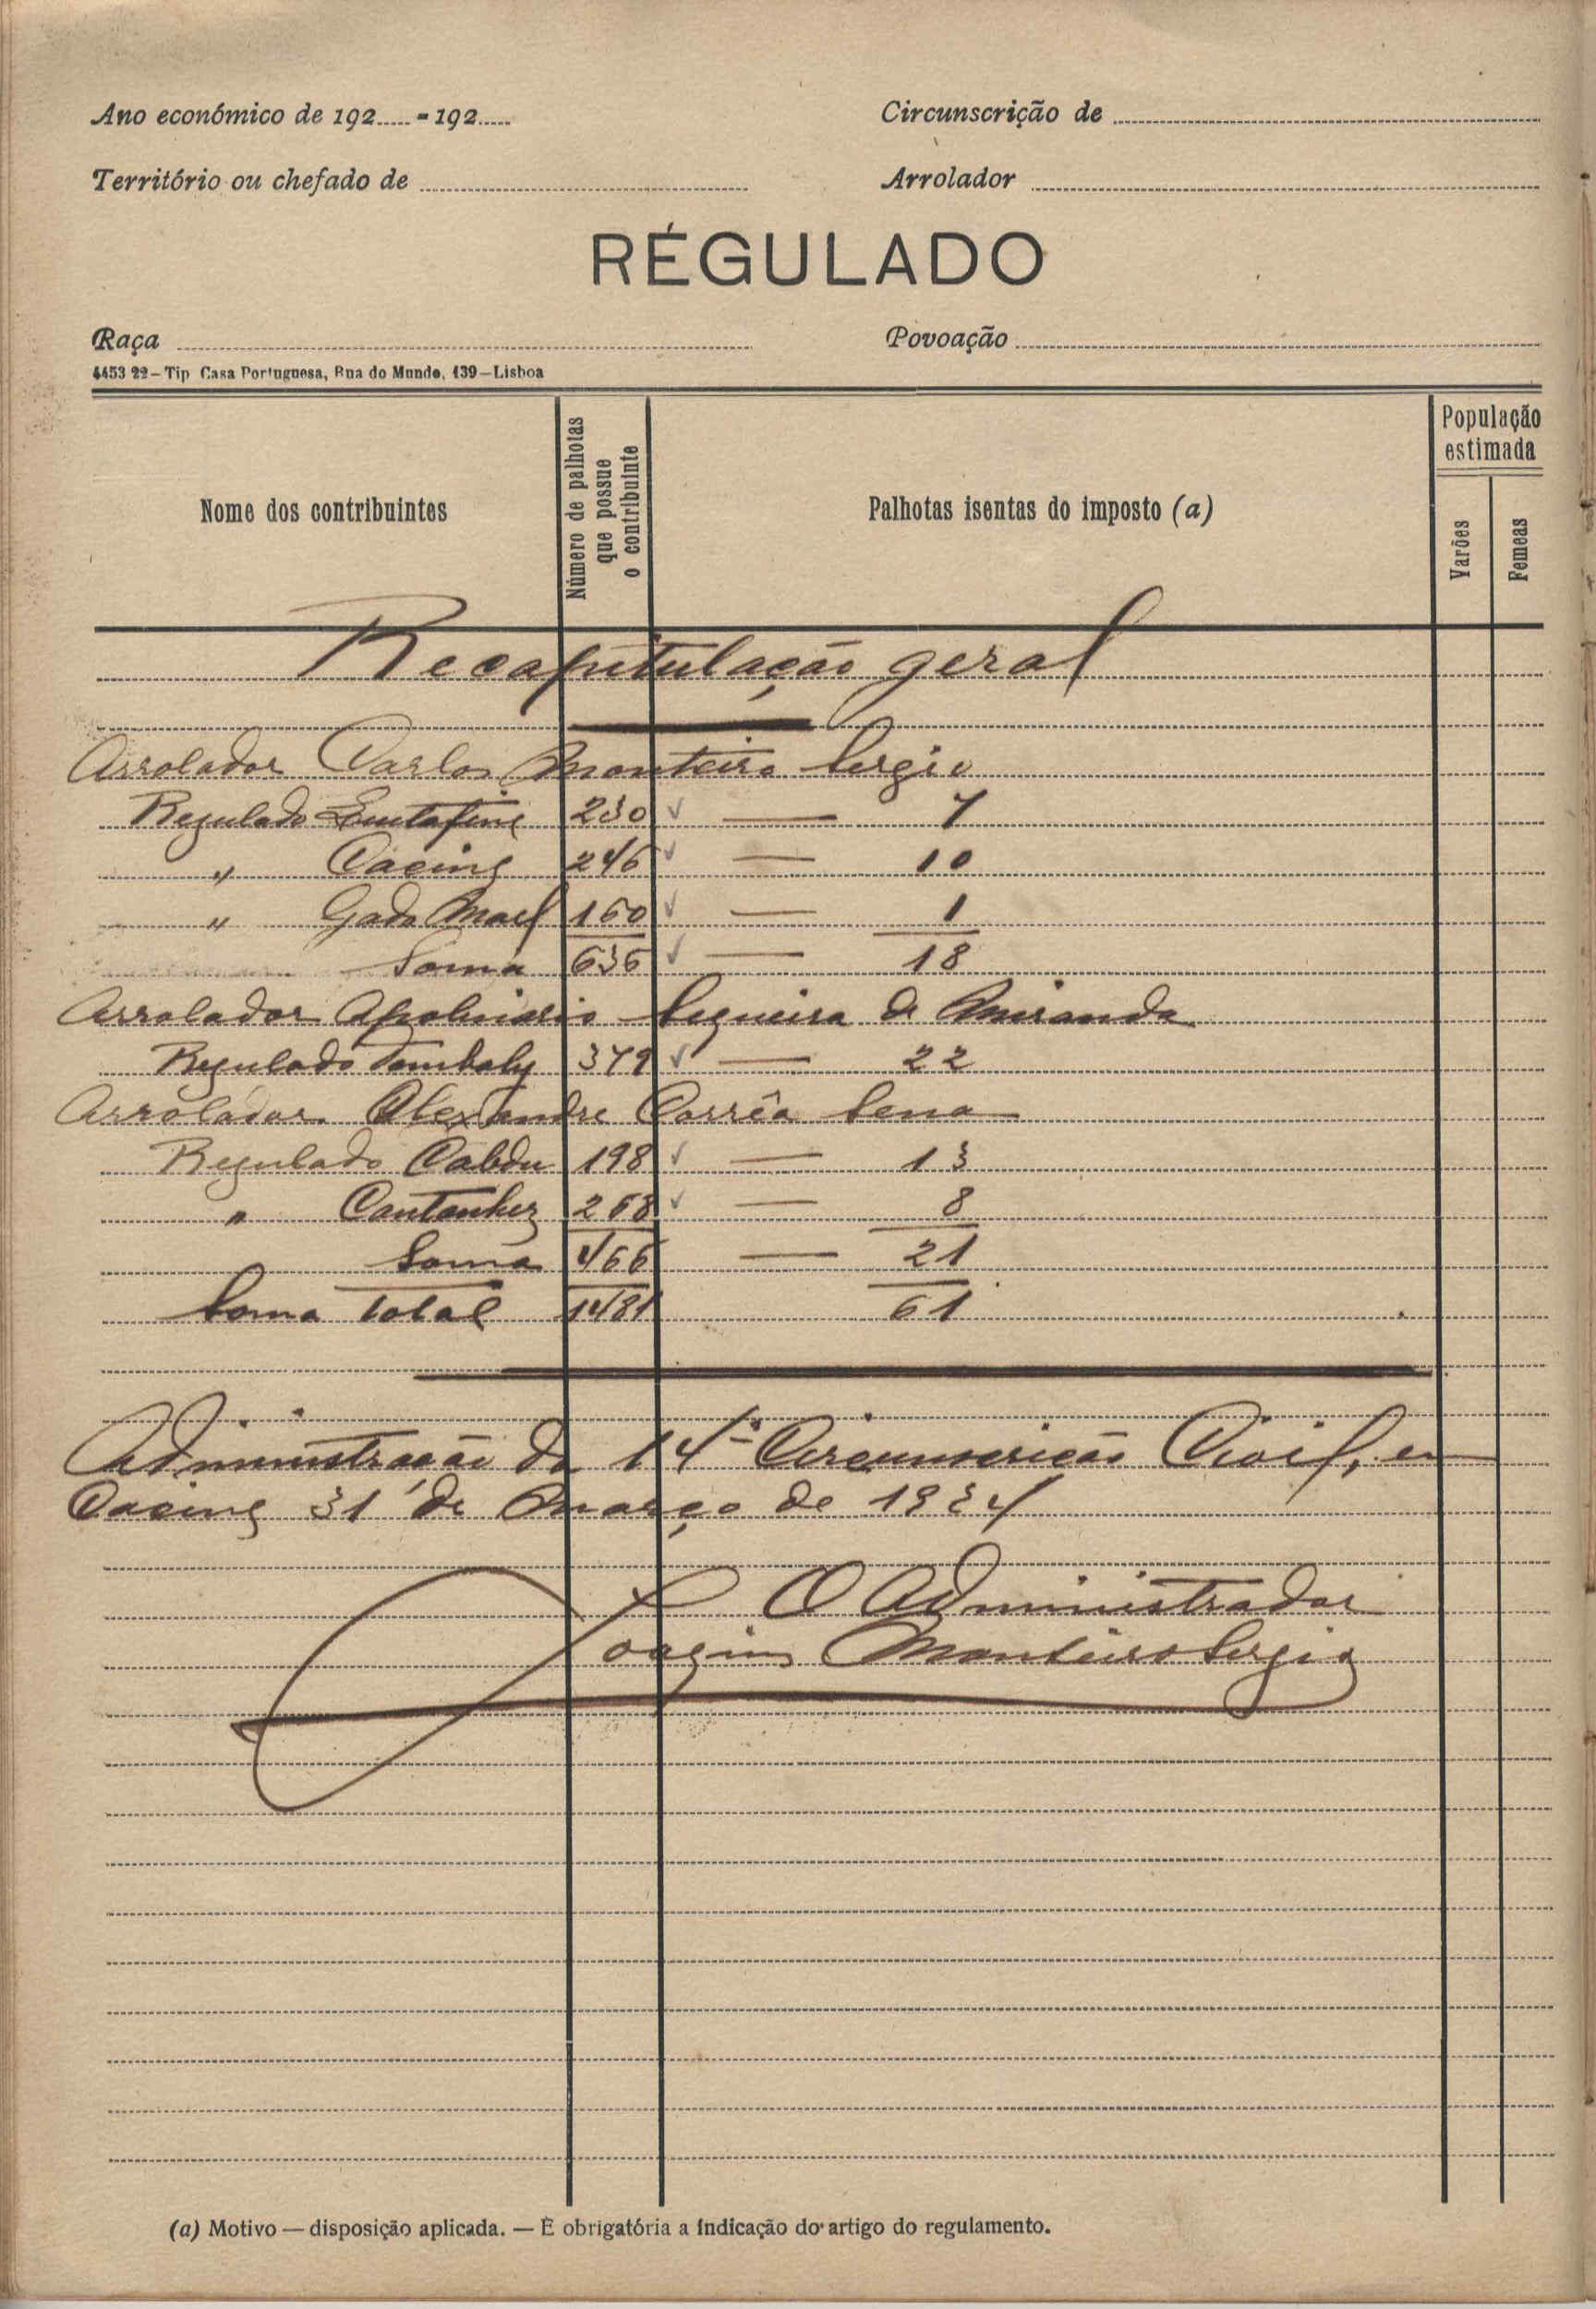 Ano económico de 192..... - 192.....
Circunscrição de
Território ou chefado de
Arrolador
RÉGULADO
Raça
Povoação
4453 22 – Tip Casa Portuguesa, Rua do Mundo, 139 – Lisboa
Nome dos contribuintes
Número de palhotas
que possue
o contribuinte
Palhotas isentas do imposto (a)
População
estimada
Varões
Femeas
Recapitulação geral
Arrolador Carlos Monteiro Sergio
Regulado Quitafine 230 ✓ — 7
" Cacine 246 ✓ — 10
" Gada Mael 160 ✓ — 1
Soma 636 ✓ — 18
Arrolador Apolinário Sequeira de Miranda
Regulado Tombaly 379 ✓ — 22
Arrolador Alexandre Corrêa Sena
Regulado Cabdu 198 ✓ — 13
" Cantanhez 268 ✓ — 8
Soma 466 — 21
Soma total 1481 61
Administração da 14ª Circunscrição Civil, em
Cacine 31 de Março de 1924
O Administrador
Joaquim Monteiro Sergio
(a) Motivo — disposição aplicada. — É obrigatória a indicação do artigo do regulamento.